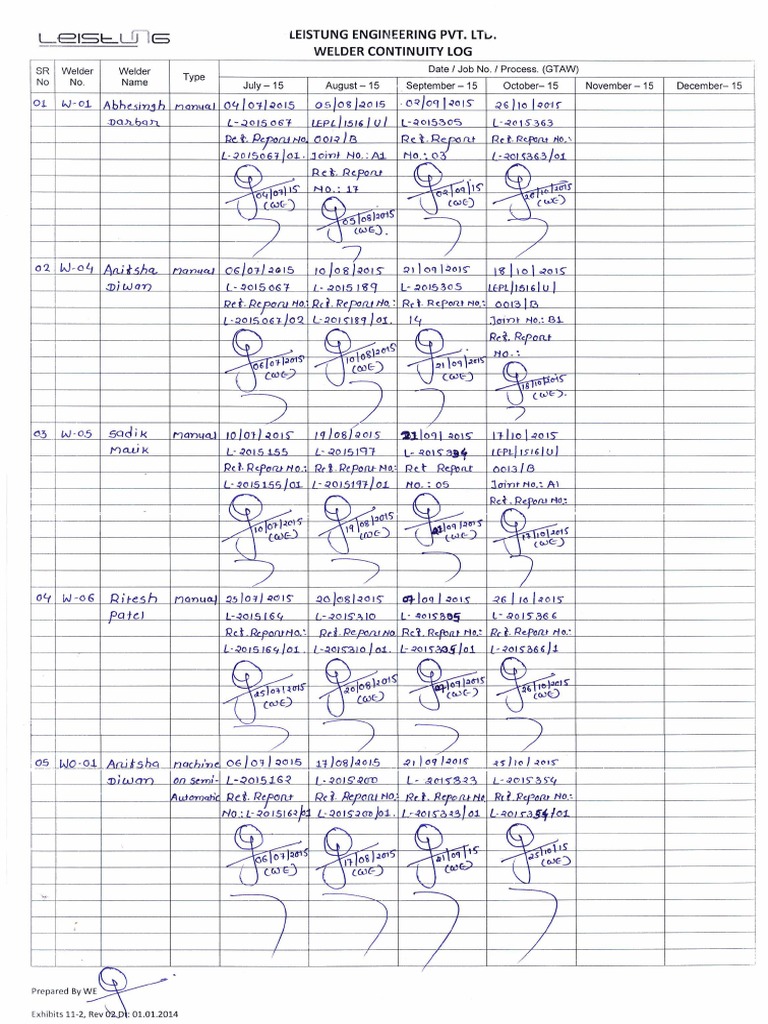 LEISTUNG
LEISTUNG ENGINEERING PVT. LTD.
WELDER CONTINUITY LOG
SR No Welder No. Welder Name Type Date / Job No. / Process. (GTAW)
July – 15 August – 15 September – 15 October– 15 November – 15 December– 15
01 W-01 Abhesingh manual 04/07/2015 05/08/2015 02/09/2015 26/10/2015
Darbar L-2015067 LEPL/1516/U/ L-2015305 L-2015363
Ref. Report No. 0012/B Ref. Report Ref. Report No.:
L-2015067/01. Joint No.: A1 No.: 03 L-2015363/01
Ref. Report
No.: 17
04/07/15 02/09/15 26/10/2015
(WE) (WE) (WE)
05/08/2015
(WE).
02 W-04 Aritsha manual 06/07/2015 10/08/2015 21/09/2015 18/10/2015
Diwan L-2015067 L-2015189 L-2015305 LEPL/1516/U/
Ref. Report No.: Ref. Report No.: Ref. Report No.: 0013/B
L-2015067/02 L-2015189/01. 14 Joint No.: B1
Ref. Report
No.:
06/07/2015 10/08/2015 21/09/2015
(WE) (WE) (WE)
18/10/2015
(WE).
03 W-05 Sadik Manual 10/07/2015 19/08/2015 21/09/2015 17/10/2015
Malik L-2015155 L-2015197 L-2015334 LEPL/1516/U/
Ref. Report No.: Ref. Report No.: Ref Report 0013/B
L-2015155/01 L-2015197/01 No.: 05 Joint No.: A1
Ref. Report No:
10/07/2015 19/08/2015 21/09/2015 17/10/2015
(WE) (WE) (WE) (WE)
04 W-06 Ritesh manual 25/07/2015 20/08/2015 07/09/2015 26/10/2015
Patel L-2015164 L-2015310 L-2015305 L-2015366
Ref. Report No.: Ref. Report No.: Ref. Report No.: Ref. Report No.:
L-2015164/01. L-2015310/01. L-2015305/01 L-2015366/1
25/07/2015 20/08/2015 07/09/2015 26/10/2015
(WE) (WE) (WE) (WE)
05 WO-01 Aritsha machine 06/07/2015 17/08/2015 21/09/2015 25/10/2015
Diwan on semi- L-2015162 L-2015200 L-2015323 L-2015354
Automatic Ref. Report Ref. Report No: Ref. Report No. Ref. Report No.:
No.: L-2015162/01 L-2015200/01. L-2015323/01 L-2015354/01
06/07/2015 17/08/2015 21/09/15 25/10/15
(WE) (WE) (WE) (WE)
Prepared By WE
Exhibits 11-2, Rev 02 Dt: 01.01.2014